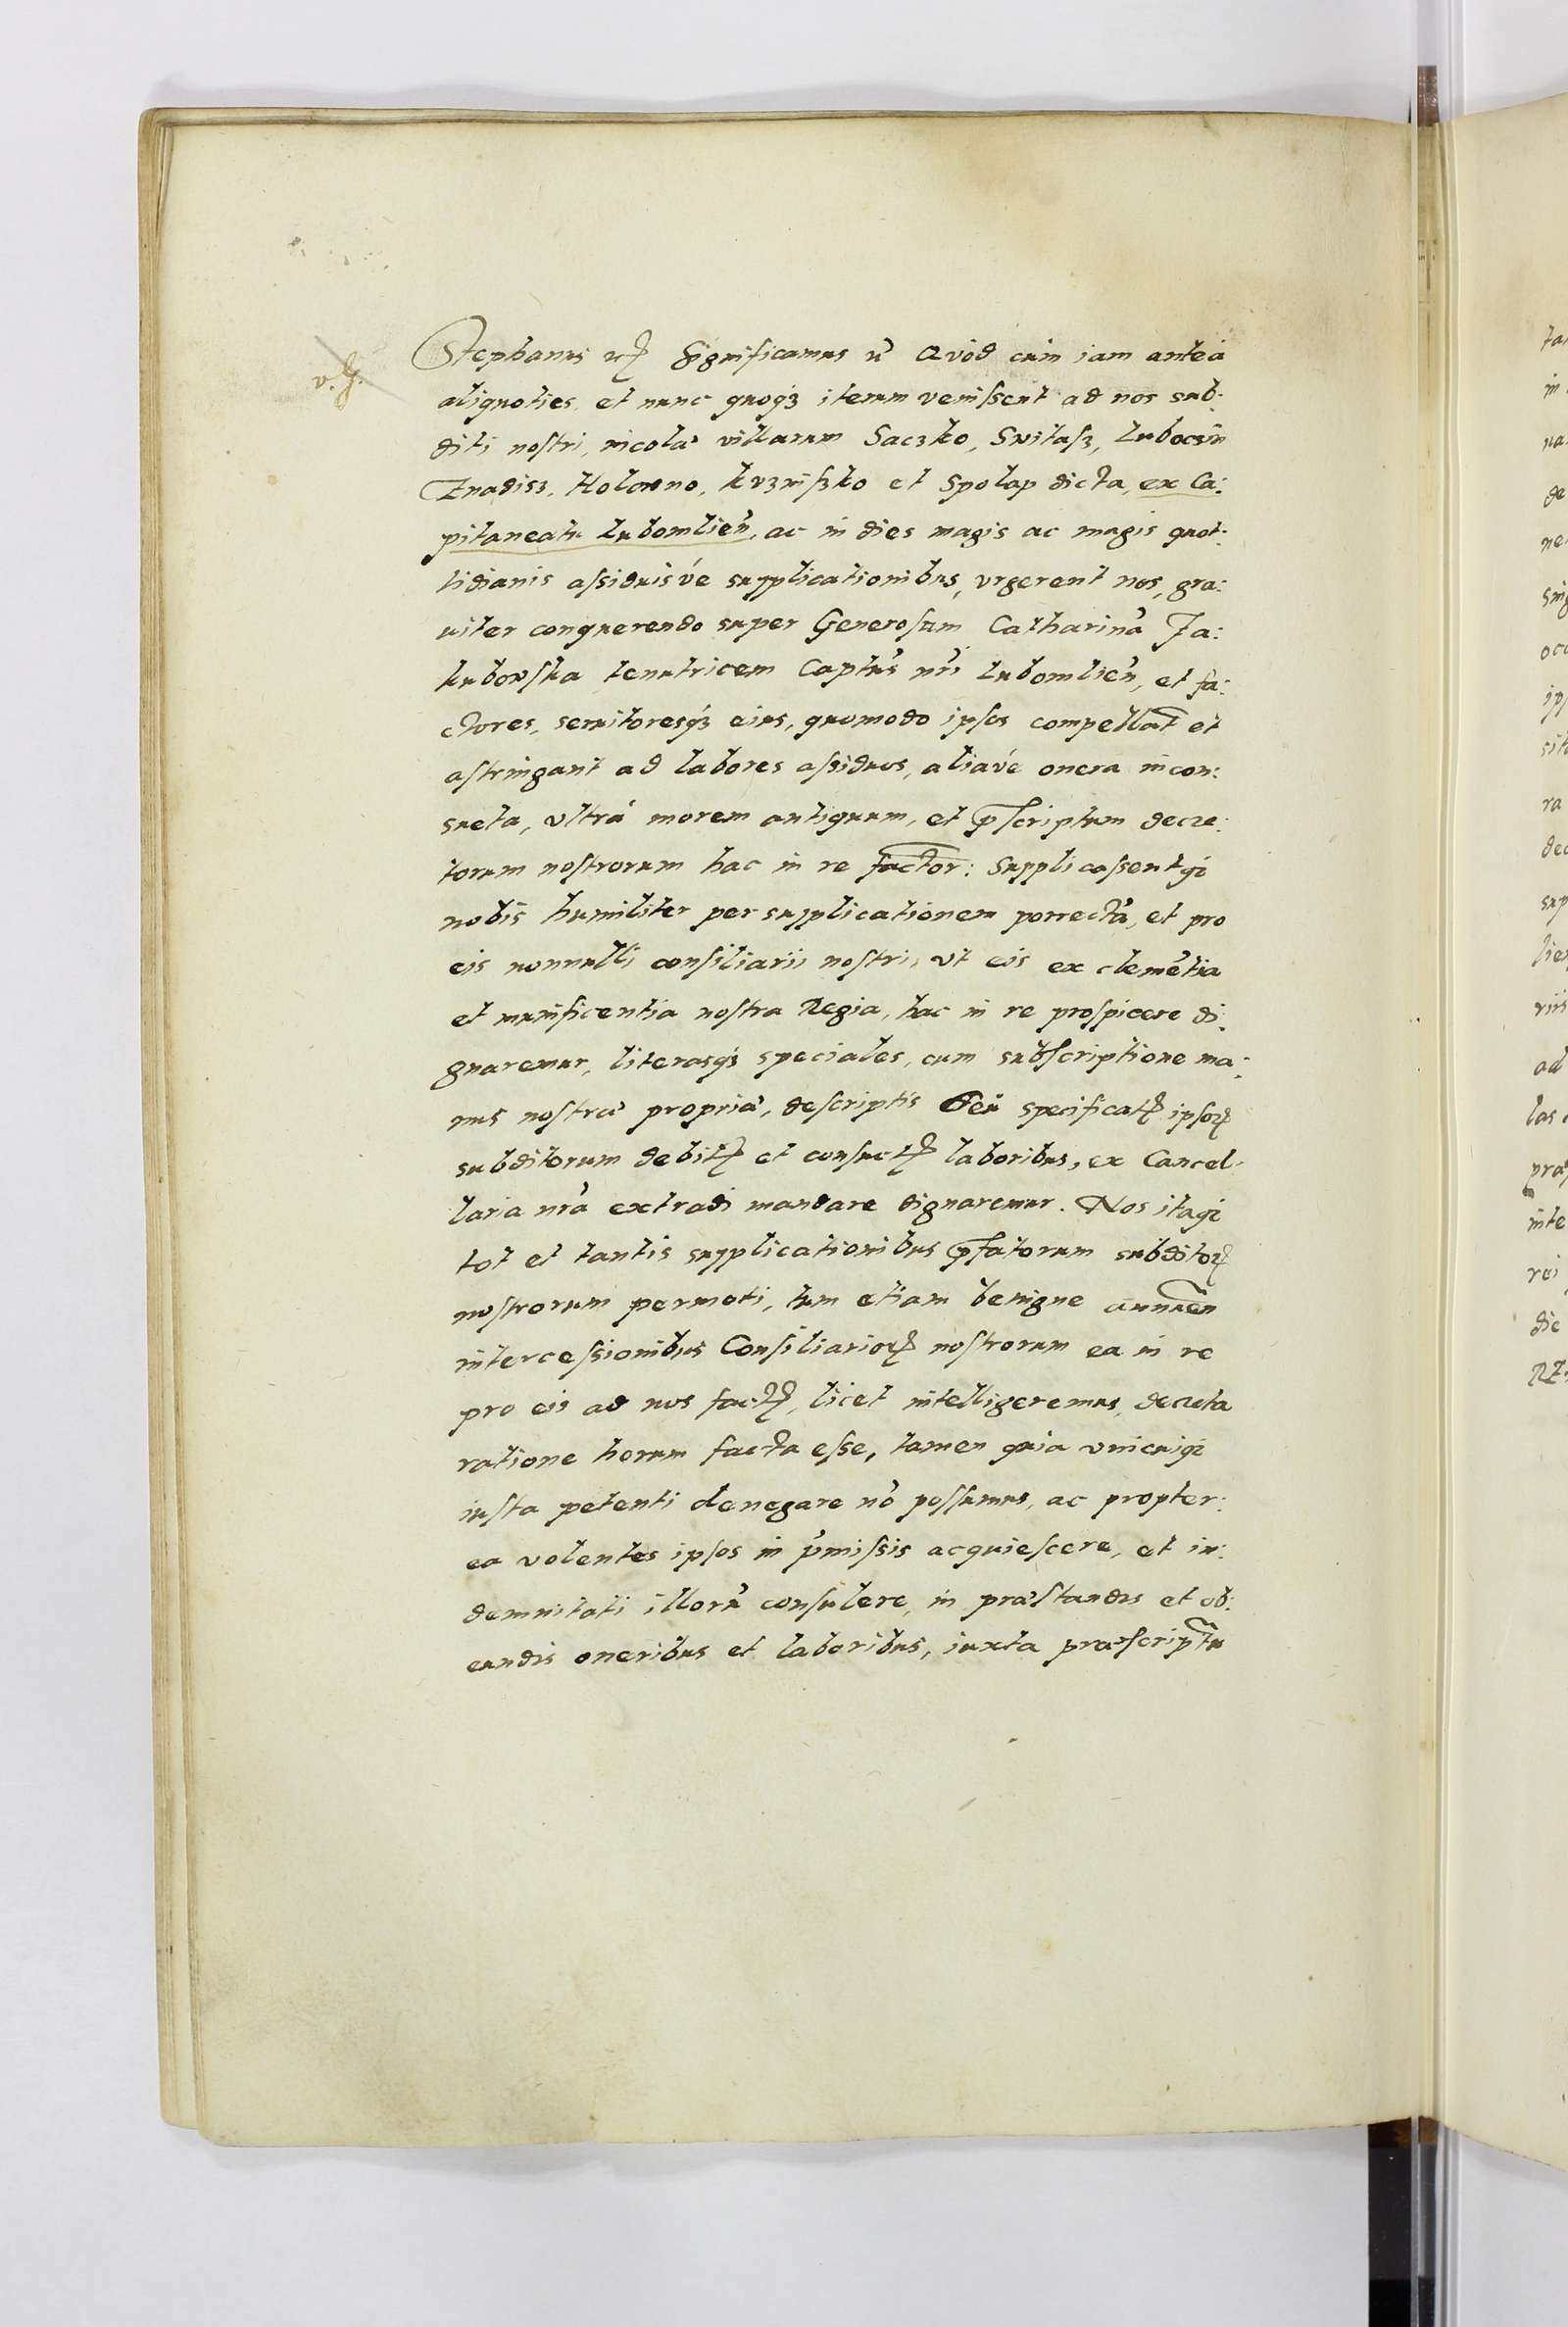 Stephanus etc Significamus etc Quod cum iam anteà
aliquoties, et nunc quoq3 iterum venissent ad nos sub:
diti nostri, incolæ villarum Saczko, Switasz, Lubocin
Znadisz, Holowno, kvzniszko et Spolap dicta, ex Ca:
pitaneatu Lubomlien̄, ac in dies magis ac magis quot:
tidianis assiduisvé supplicationibus, vrgerent nos, gra:
uiter conquerendo super Generosam Catharinā Ja:
kubowska tenutricem Captūs nr̄i Lubomlien̄, et fa:
ctores, seruitoresq3 eius, quomodo ipsos compellāt et
astringant ad labores assiduos, aliavé onera incon:
sueta, vltrá morem antiquum, et p̄scriptum decre:
torum nostrorum hac in re factor: Supplicassentq3
nobis humiliter per supplicationem porrectā, et pro
eis nonnulli consiliarii nostri, vt eis ex clemētia
et munificentia nostra Regia, hac in re prospicere di:
gnaremur, literasq3 speciales, cum subscriptione ma:
nus nostræ propriæ, descriptis seu specificat ipsor
subditorum debit et consuet laboribus, ex Cancel:
laria nr̄a extradi mandare dignaremur. Nos itaq3
tot et tantis supplicationibus p̄fatorum subditor
nostrorum permoti, tum etiam benigne annuen̄
intercessionibus Consiliarior nostrorum ea in re
pro eis ad nos fact, licet intelligeremus, decreta
ratione horum facta esse, tamen quia vnicuiq3
iusta petenti denegare nō possumus, ac propter:
ea volentes ipsos in p̄missis acquiescere, et in:
demnitati illorū consulere, in præstandis et ob:
eundis oneribus et laboribus, iuxta præscriptū